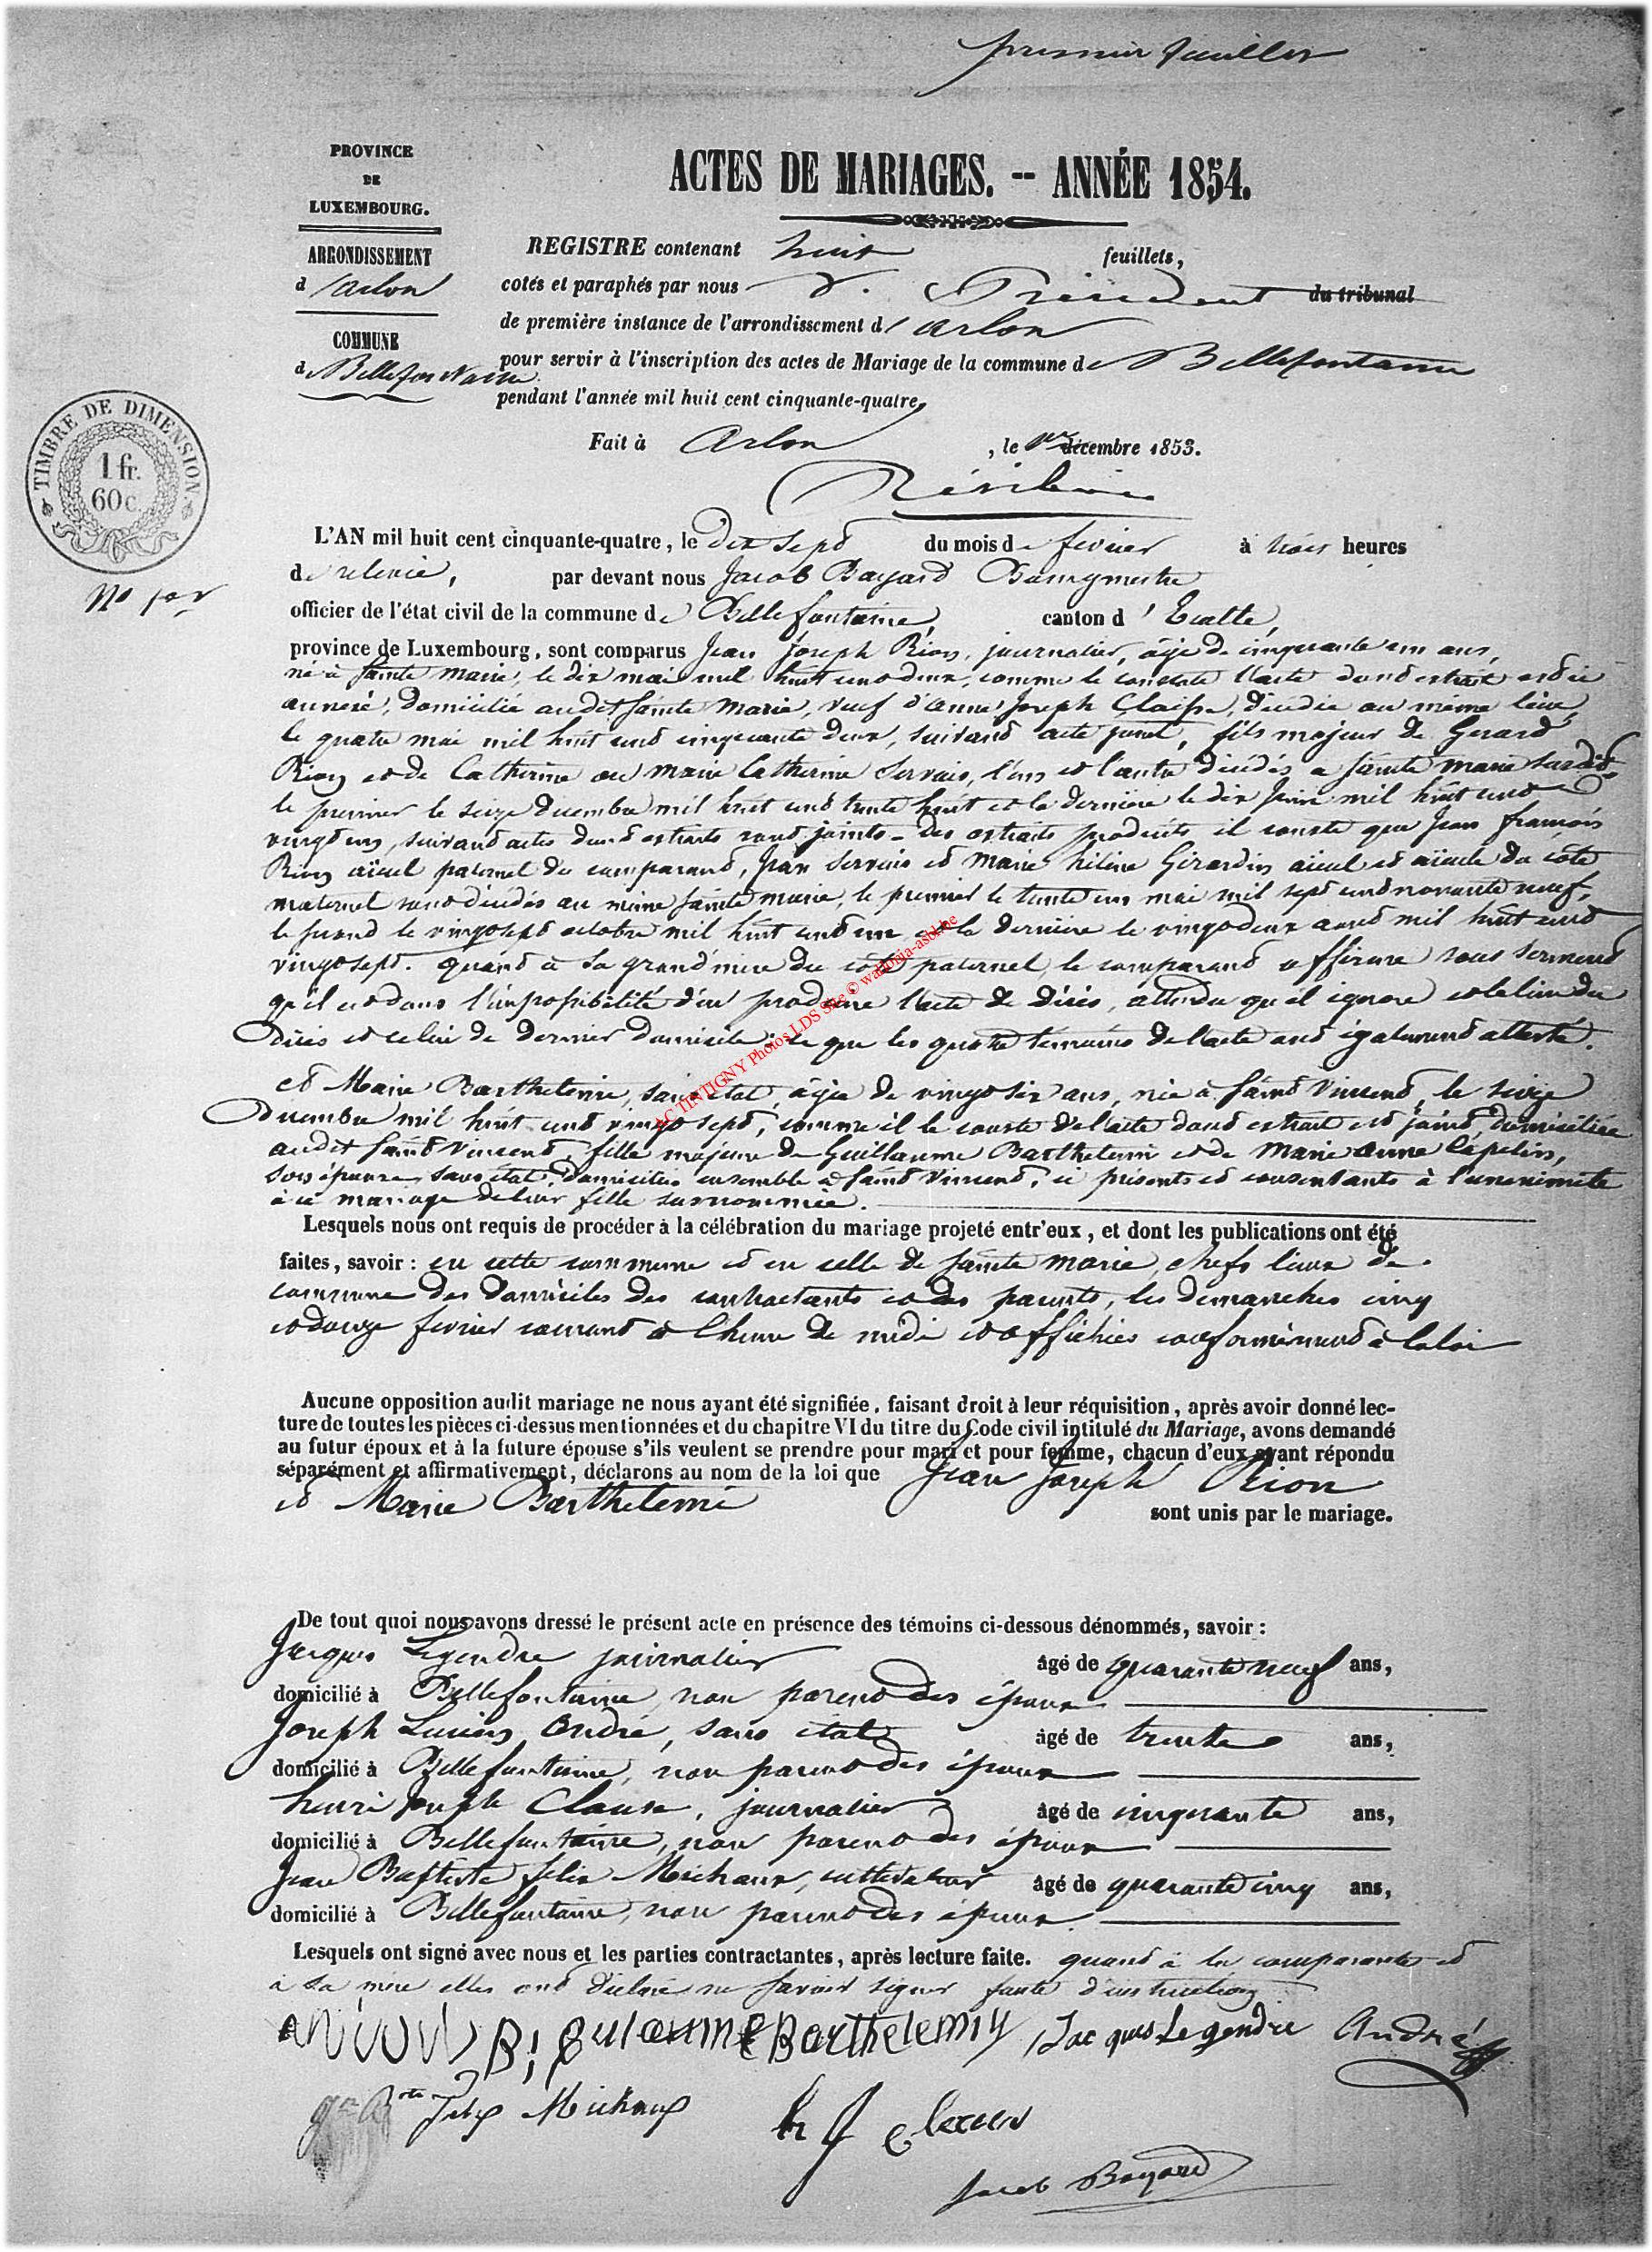 premier feuillet
PROVINCE
DE
LUXEMBOURG.
ARRONDISSEMENT
d'Arlon
COMMUNE
de Bellefontaine
ACTES DE MARIAGES. -- ANNÉE 1854.
REGISTRE contenant huit feuillets,
cotés et paraphés par nous Président du tribunal
de première instance de l'arrondissement d'Arlon
pour servir à l'inscription des actes de Mariage de la commune de Bellefontaine
pendant l'année mil huit cent cinquante-quatre,
Fait à Arlon, le 1er décembre 1853.
TIMBRE DE DIMENSION
1 fr.
60 c.
No 1er
L'AN mil huit cent cinquante-quatre, le dix sept du mois de fevrier à trois heures
de relevée, par devant nous Jacob Bayard Bourgmestre
officier de l'état civil de la commune de Bellefontaine, canton d'Etalle,
province de Luxembourg, sont comparus Jean Joseph Rion, journalier, âgé de cinquante un ans,
né à Sainte Marie, le dix mai mil huit cent deux, comme le constate l'acte dont extrait est ci
annexé, domicilié audit Sainte Marie, veuf d'Anne Joseph Claisse, décédée au même lieu,
le quatre mai mil huit cent cinquante deux, suivant acte joint, fils majeur de Gerard
Rion et de Catherine ou Marie Catherine Servais, l'un et l'autre décédés a Sainte Marie susdit,
le premier le seize decembre mil huit cent trente huit et la dernière le dix Juin mil huit cent
vingt un, suivant actes dont extraits sont joints - Des extraits produits il conste que Jean françois
Rion aïeul paternel du comparant, Jean Servais et Marie hélène Girardin aieul et aïeule du côté
maternel sont décédés au même Sainte Marie, le premier le trente un mai mil sept cent novante neuf,
le second le vingt sept octobre mil huit cent un et la dernière le vingt deux aout mil huit cent
vingt sept. quant à sa grand'mère du côté paternel, le comparant affirme sous serment
qu'il est dans l'impossibilité d'en produire l'acte de décès, attendu qu'il ignore et le lieu du
décès et celui de dernier domicile; ce que les quatre témoins de l'acte ont également attesté.
et Marie Barthelemi, sans état, âgée de vingt six ans, née à Saint Vincent, le seize
decembre mil huit cent vingt sept, comme il le conste de l'acte dont extrait est joint, domiciliée
audit Saint Vincent, fille majeure de Guillaume Barthelemi et de Marie Anne Lépelin,
son épouse sans état, domiciliés ensemble à Saint Vincent, ci présents et consentants à l'unanimité
à ce mariage de leur fille surnommée.
Lesquels nous ont requis de procéder à la célébration du mariage projeté entr'eux, et dont les publications ont été
faites, savoir : en cette commune et en celle de Sainte Marie, chefs lieux de
commune des domiciles des contractants et des parents, les dimanches cinq
et douze fevrier courant à l'heure de midi et affichées conformément à la loi
Aucune opposition audit mariage ne nous ayant été signifiée, faisant droit à leur réquisition, après avoir donné lec-
ture de toutes les pièces ci-dessus mentionnées et du chapitre VI du titre du Code civil intitulé du Mariage, avons demandé
au futur époux et à la future épouse s'ils veulent se prendre pour mari et pour femme, chacun d'eux ayant répondu
séparément et affirmativement, déclarons au nom de la loi que Jean Joseph Rion
et Marie Barthelemi sont unis par le mariage.
De tout quoi nous avons dressé le présent acte en présence des témoins ci-dessous dénommés, savoir :
Jacques Legendre journalier âgé de quarante neuf ans,
domicilié à Bellefontaine, non parent des époux
Joseph Lucien André, sans état âgé de trente ans,
domicilié à Bellefontaine, non parent des époux
henri Joseph Clause, journalier âgé de cinquante ans,
domicilié à Bellefontaine, non parent des époux
Jean Baptiste felix Michaux, cultivateur âgé de quarante cinq ans,
domicilié à Bellefontaine, non parent des époux
Lesquels ont signé avec nous et les parties contractantes, après lecture faite. quant à la comparante et
à sa mère elles ont déclaré ne savoir signer faute d'instruction
Barthelemiy Jacques Legendre André
Felix Michaux h J
Jacob Bayard
AC TINTIGNY Photos LDS Site © wallonia-asbl.be